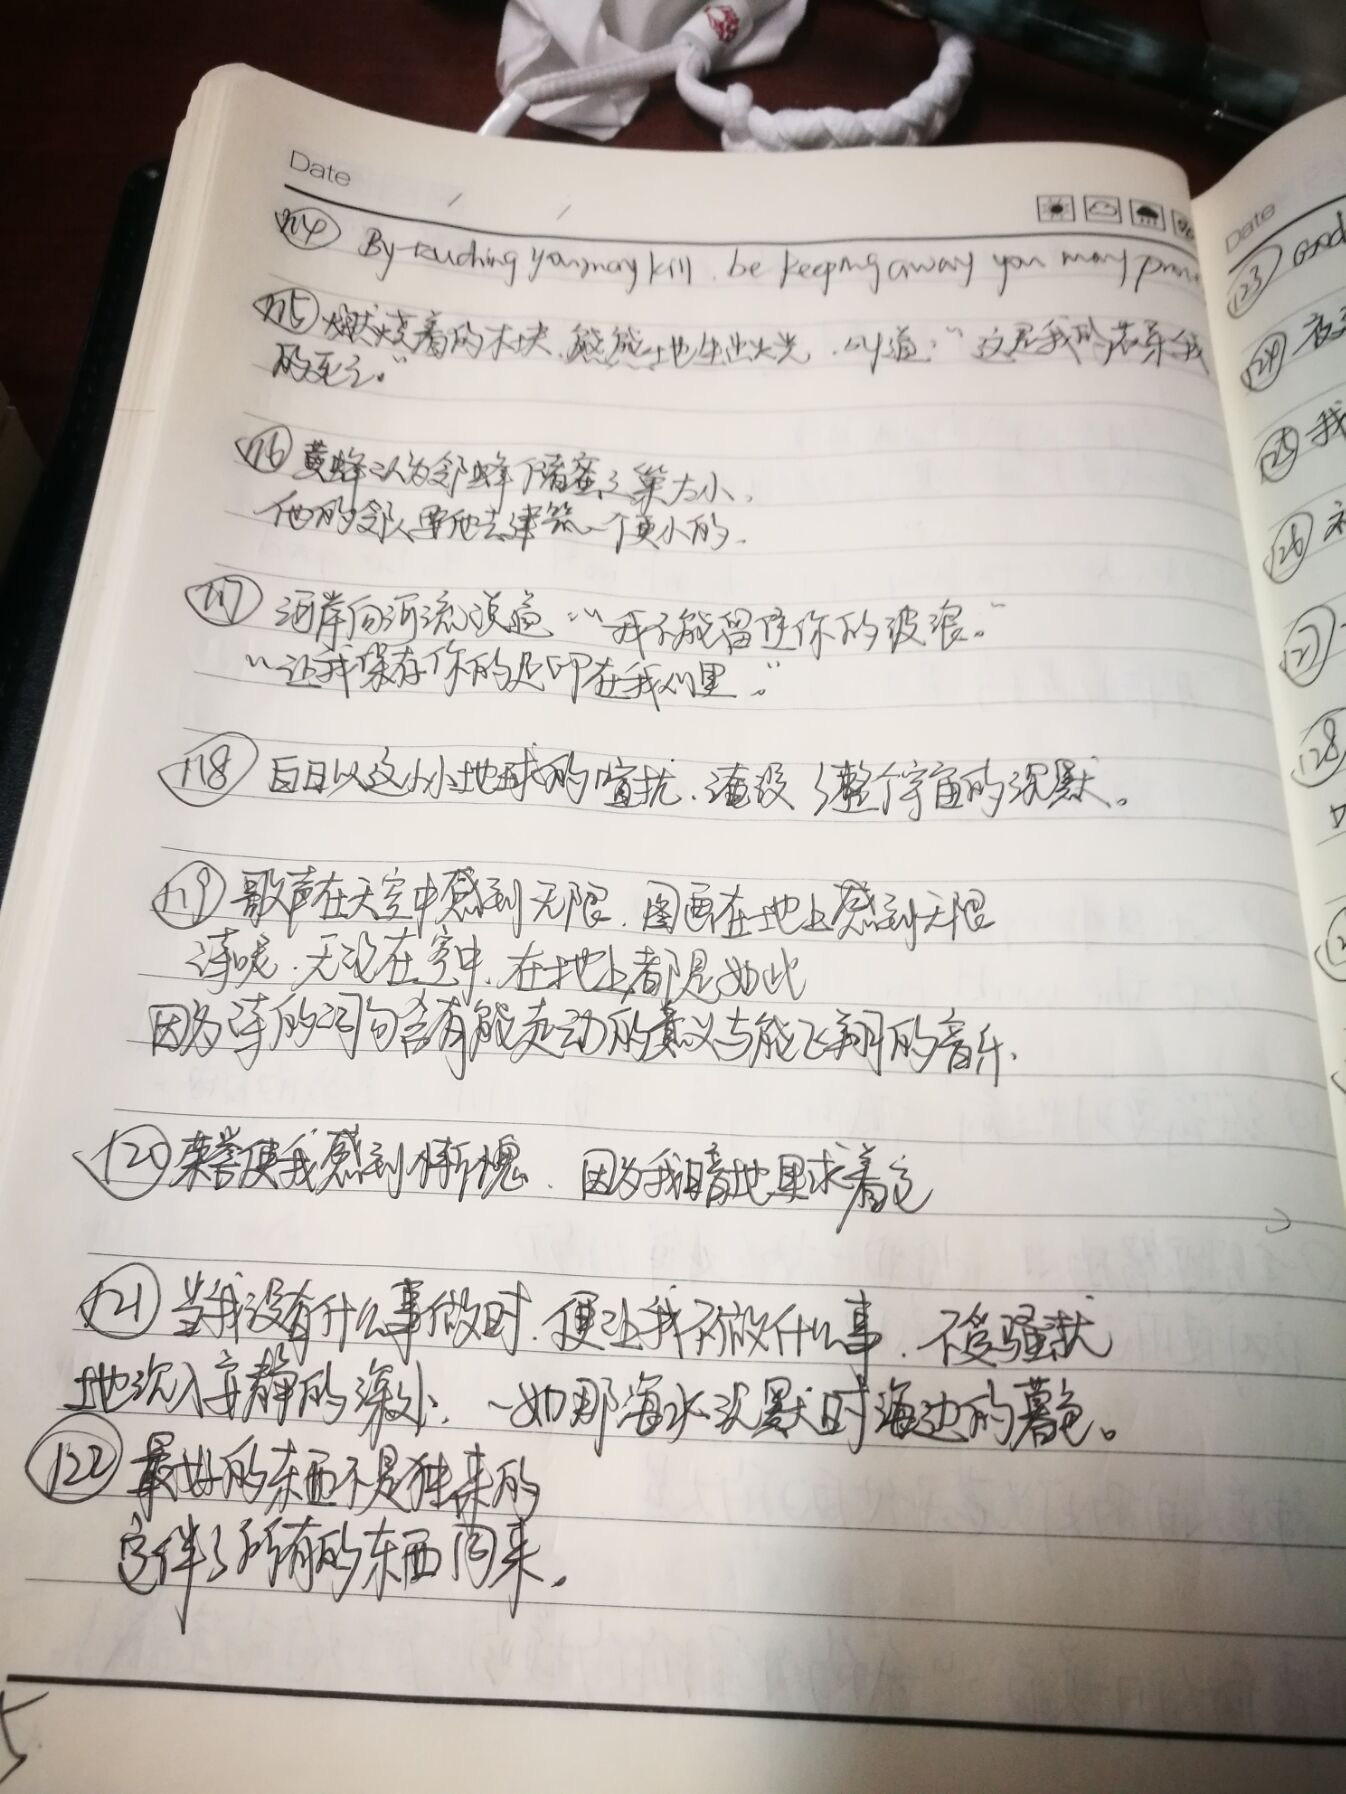 Date / /
114 By touching you may kill, be keeping away you may
115 燃烧着的木块,熊熊地生出火光,叫道:“这是我的花朵,我
的死亡。”
116 黄蜂认为邻蜂储蜜之巢太小,
他的邻人要他去建筑一个更小的.
117 河岸向河流说道:“我不能留住你的波浪。”
“让我保存你的足印在我心里。”
118 白日以这小小地球的喧扰,淹没了整个宇宙的沉默。
119 歌声在天空中感到无限,图画在地上感到无限
诗呢,无论在空中,在地上都是如此
因为诗的词句含有能走动的意义与能飞翔的音乐.
120 荣誉使我感到惭愧,因为我暗地里求着它
121 当我没有什么事做时,便让我不做什么事,不受骚扰
地沉入安静的深处,一如那海水沉默时海边的暮色。
122 最好的东西不是独来的
它伴了所有的东西同来.
5
Date
123 Good
124 夜
125 我
126
127
128